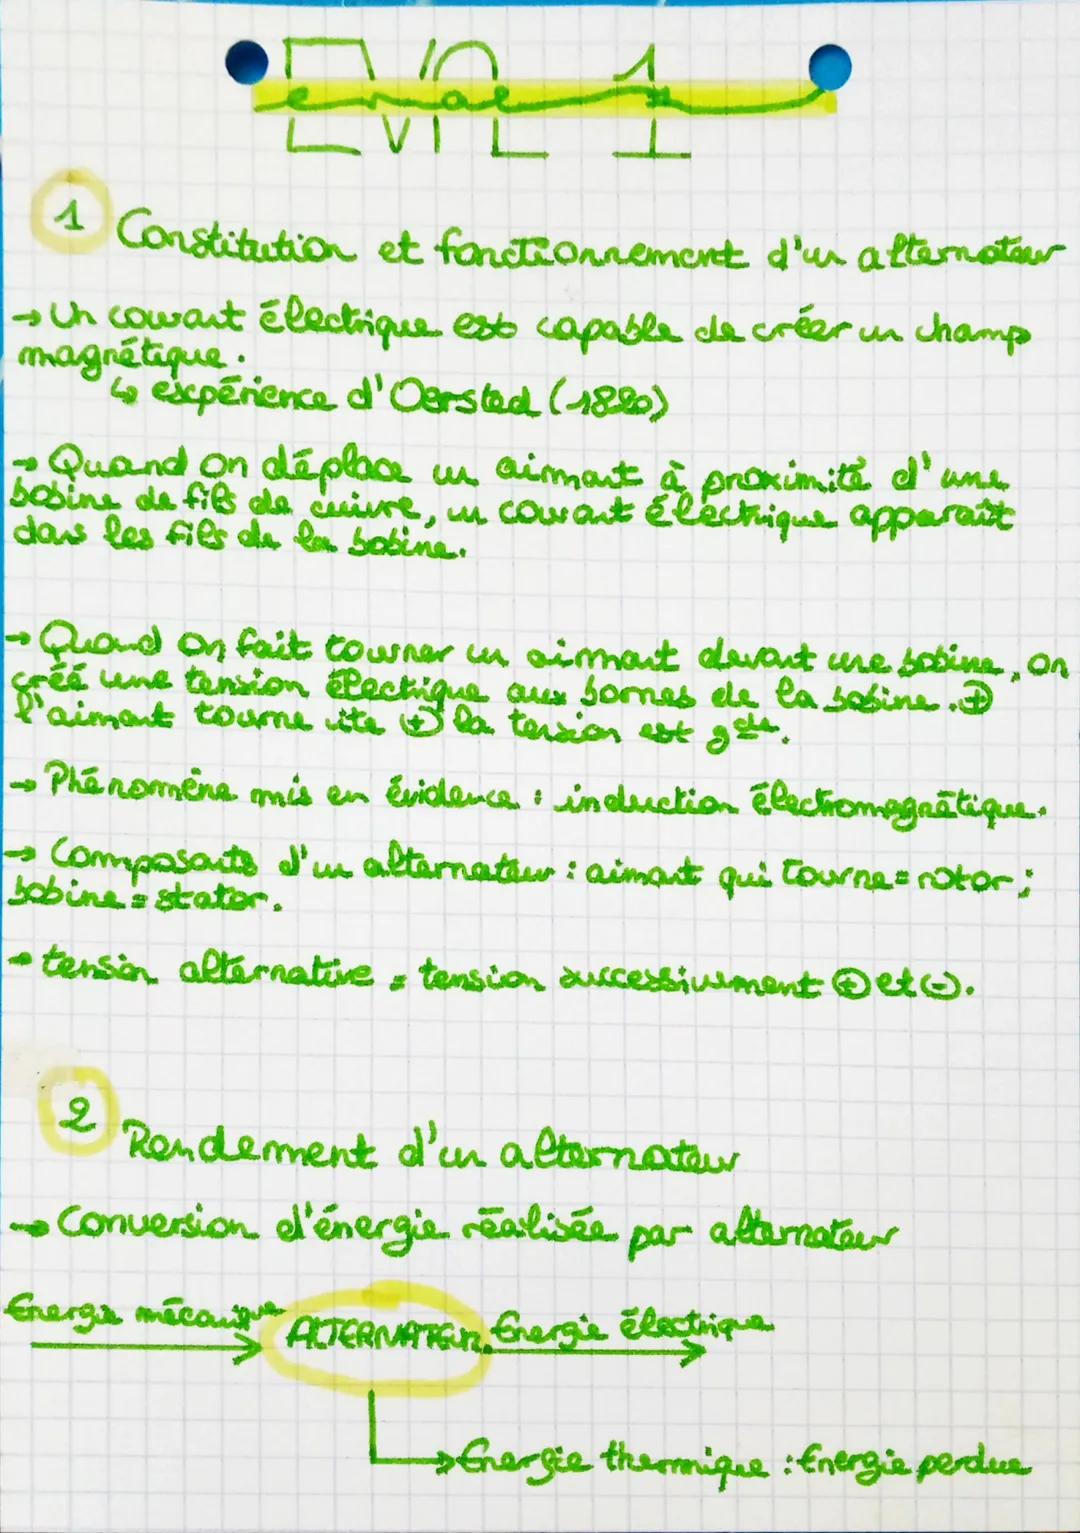 EVAL 1
eval 1
1 Constitution et fonctionnement d'un alternateur
→ Un courant électrique est capable de créer un champ
magnétique.
↳ expérience d'Oersted (1820)
→ Quand on déplace un aimant à proximité d'une
bobine de fils de cuivre, un courant électrique apparaît
dans les fils de la bobine.
→ Quand on fait tourner un aimant devant une bobine, on
créé une tension électrique aux bornes de la bobine. ⊕
l'aimant tourne vite ⊕ la tension est gde.
→ Phénomène mis en évidence : induction électromagnétique.
→ Composants d'un alternateur : aimant qui tourne = rotor ;
bobine = stator.
→ tension alternative = tension successivement ⊕ et ⊖.
2 Rendement d'un alternateur
→ Conversion d'énergie réalisée par alternateur
Énergie mécanique → ALTERNATEUR. Énergie électrique →
→ Énergie thermique : Énergie perdue